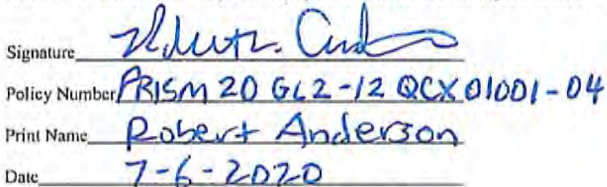 Signature
Policy Number PRISM 20 GL2-12 QCX01001-04
Print Name Robert Anderson
Date 7-6-2020